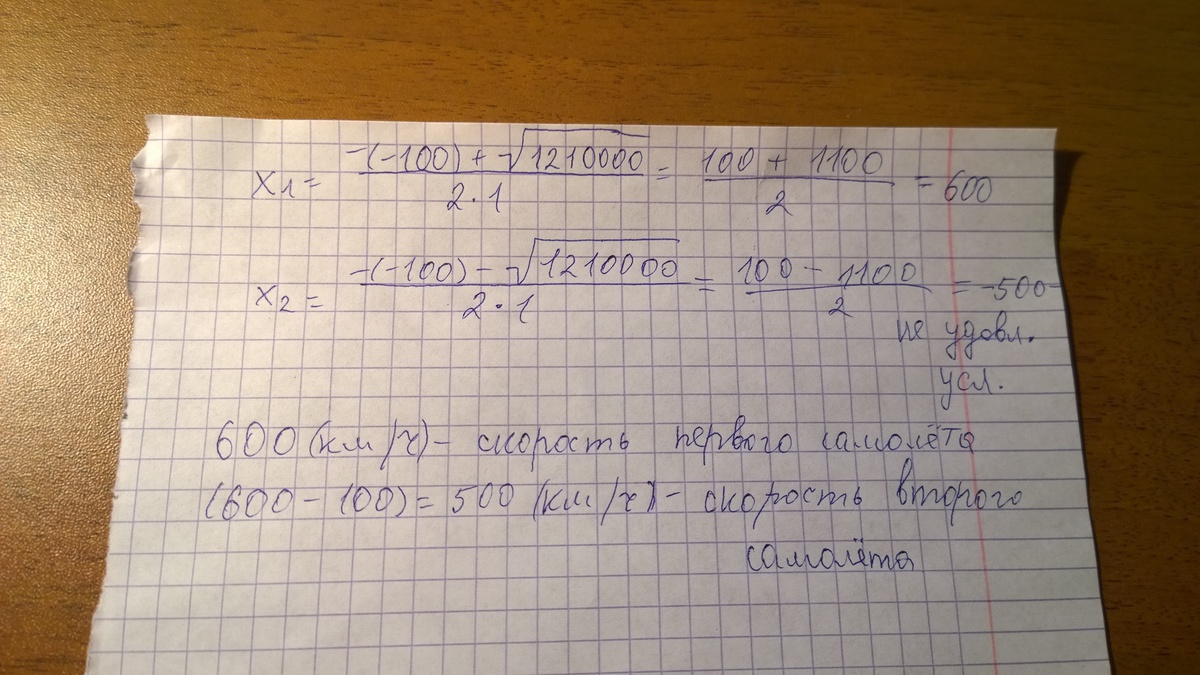 x₁ = (-(-100) + √1210000) / (2·1) = (100 + 1100) / 2 = 600
x₂ = (-(-100) - √1210000) / (2·1) = (100 - 1100) / 2 = -500 -
не удовл.
усл.
600 (км/ч) - скорость первого самолёта
(600 - 100) = 500 (км/ч) - скорость второго
самолёта